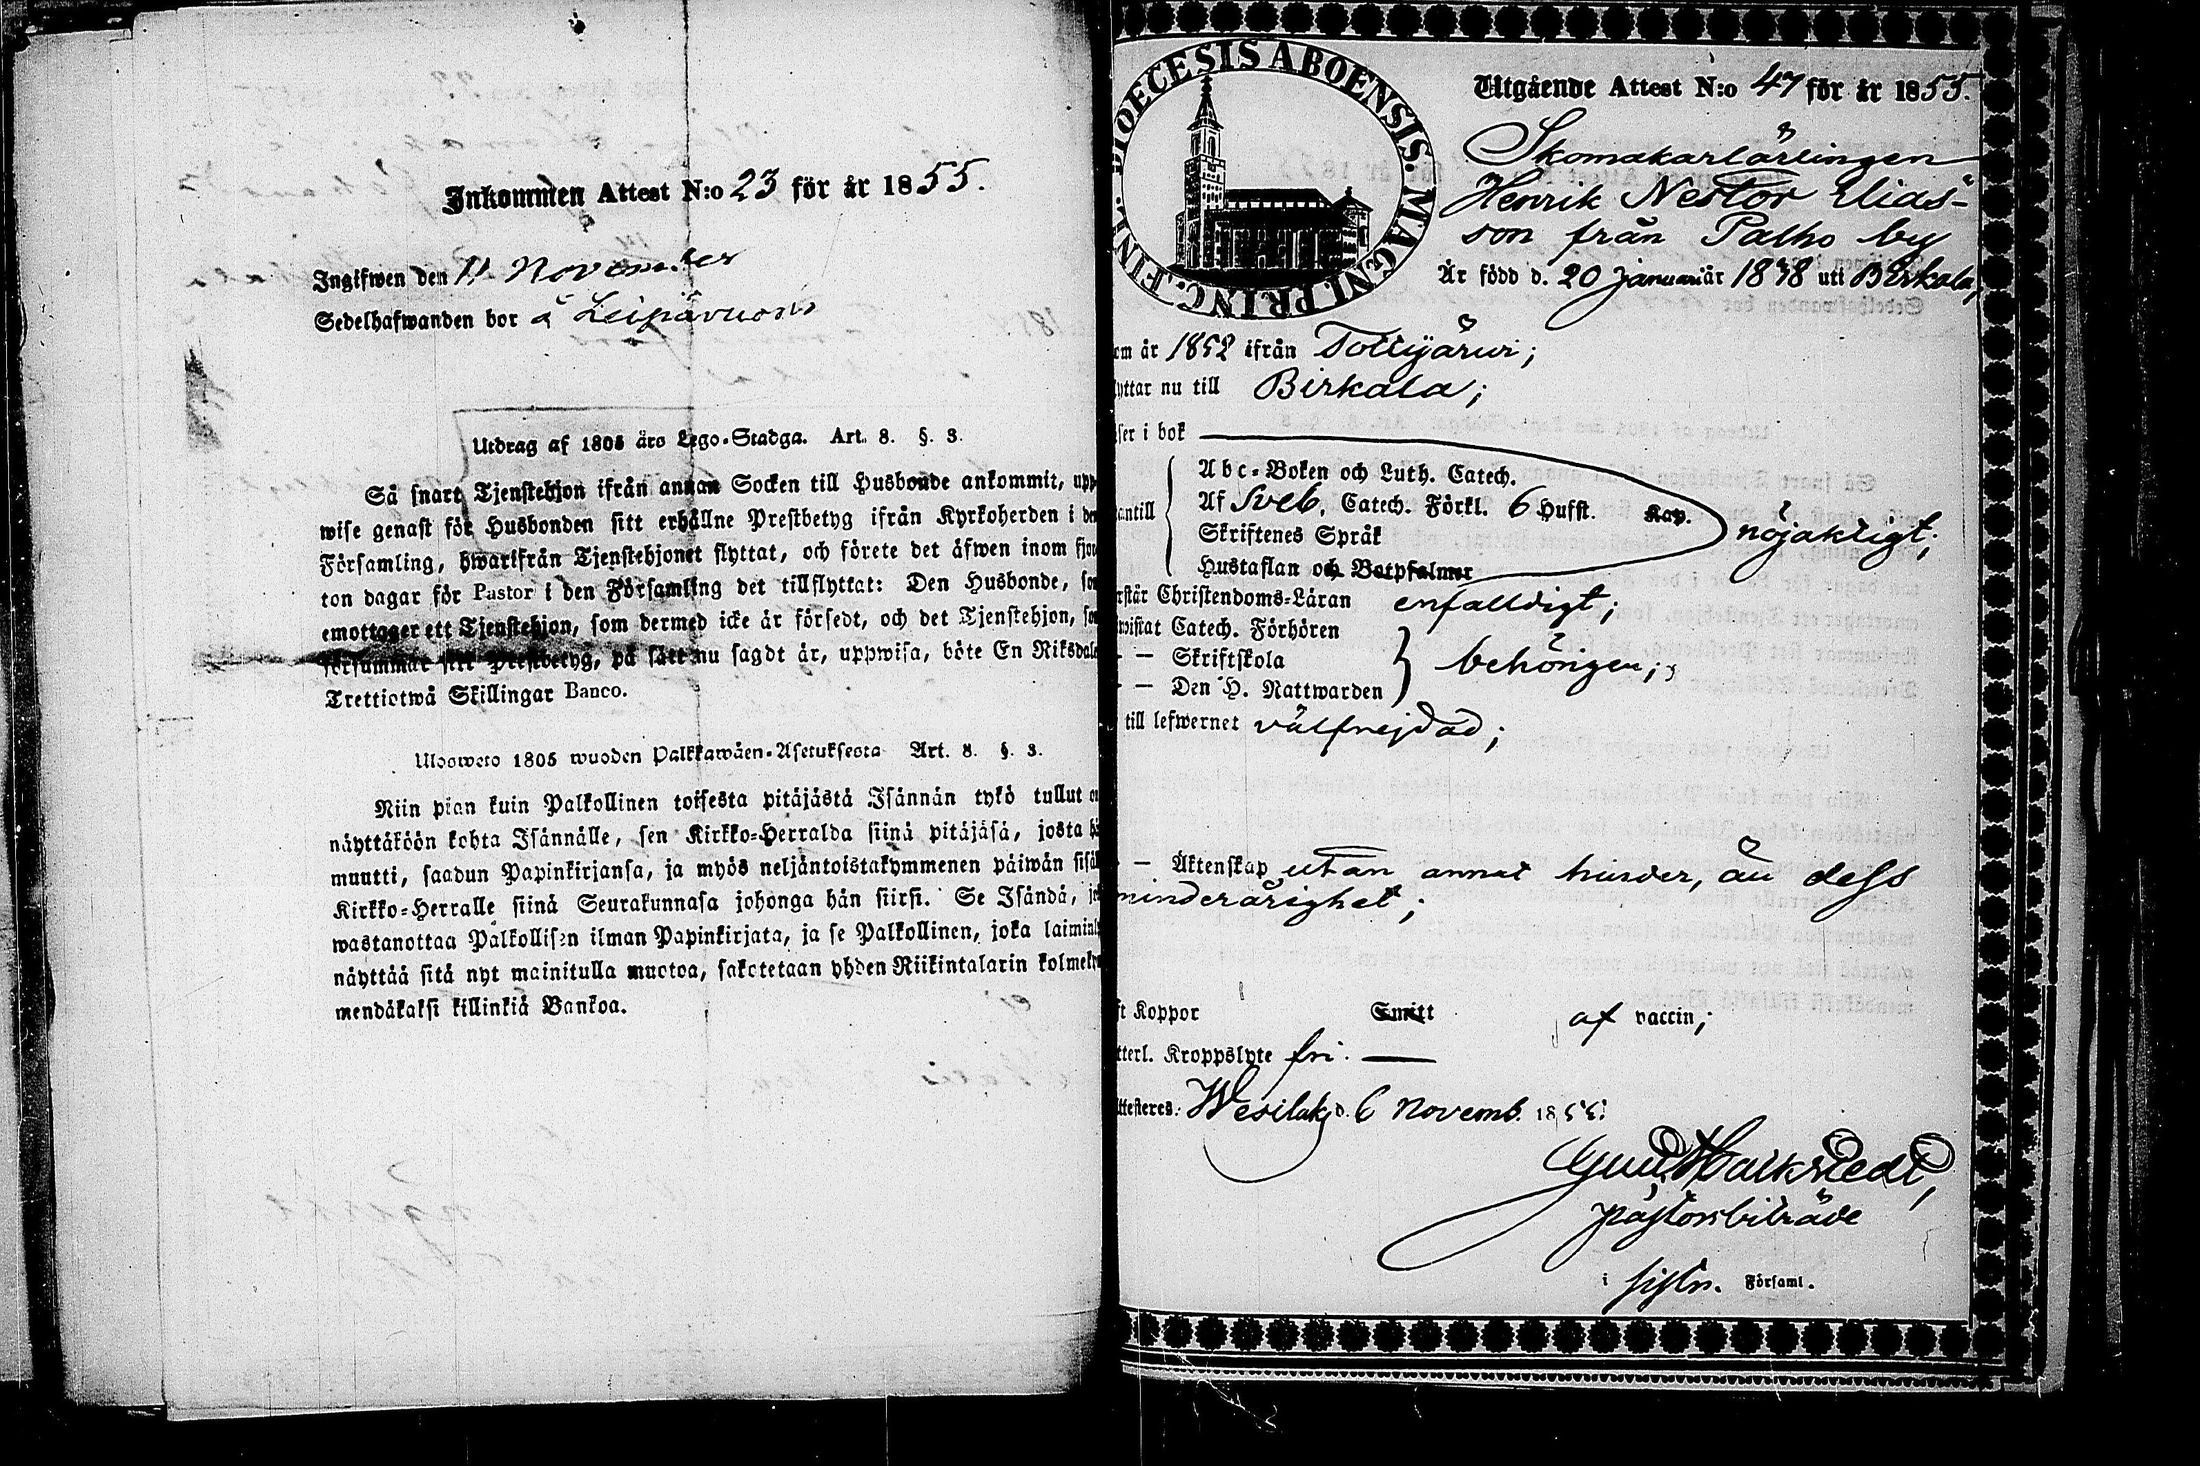 Inkommen Attest N:o 23 för år 1855.
Ingifwen den 11 November
Sedelhafwanden bor å Leipävuori
Utdrag af 1805 års Lego-Stadga. Art. 8. §. 3.
Så snart Tjenstehjon ifrån annan Socken till Husbonde ankommit, upp-
wise genast för Husbonden sitt erhållne Prestbetyg ifrån Kyrkoherden i den
Församling, hwarifrån Tjenstehjonet flyttat, och förete det äfwen inom fjor-
ton dagar för Pastor i den Församling det tillflyttat: Den Husbonde, som
emottager ett Tjenstehjon, som dermed icke är försedt, och det Tjenstehjon, som
försummar sitt Prestbetyg, på sätt nu sagdt är, uppwisa, böte En Riksdaler
Trettiotwå Skillingar Banco.
Ulosweto 1805 wuoden Palkkawäen-Asetuksesta Art. 8. §. 3.
Niin pian kuin Palkollinen toisesta pitäjästä Isännän tykö tullut on
näyttäköön kohta Isännälle, sen Kirkko-Herralda siinä pitäjäsä, josta hän
muutti, saadun Papinkirjansa, ja myös neljäntoistakymmenen päiwän sisäl
Kirkko-Herralle siinä Seurakunnasa johonga hän siirsi. Se Isändä, jo
wastanottaa Palkollisen ilman Papinkirjata, ja se Palkollinen, joka laimin
näyttää sitä nyt mainitulla muotoa, sakotetaan yhden Riikintalarin kolmeky
mendäkaksi killinkiä Bankoa.
DIOECESIS ABOENSIS. MAGNI. PRINC. FINL.
Utgående Attest N:o 47 för år 1855.
Skomakarlärlingen
Henrik Nestor Elias-
son från Palho by
Är född d. 20 januari år 1838 uti Birkala,
om år 1852 ifrån Tottijärwi;
yttar nu till Birkala;
ser i bok
antill
Abc-Boken och Luth. Catech.
Af Sveb. Catech. Förkl. 6 Hufst. Kap.
Skriftenes Språk
Hustaflan och Botpsalmer
nöjaktigt;
rstår Christendoms-Läran enfalldigt;
wistat Catech. Förhören
— Skriftskola
— Den H. Nattwarden
behörigen;
till lefwernet välfrejdad;
— Äktenskap utan annat hinder, än dess
minderårighet;
ft Koppor Smitt af vaccin;
tterl. Kroppslyte fri.
Attesteres. Wesilaks d. 6 Novemb. 1855.
pastorsbiträde
i Församl.